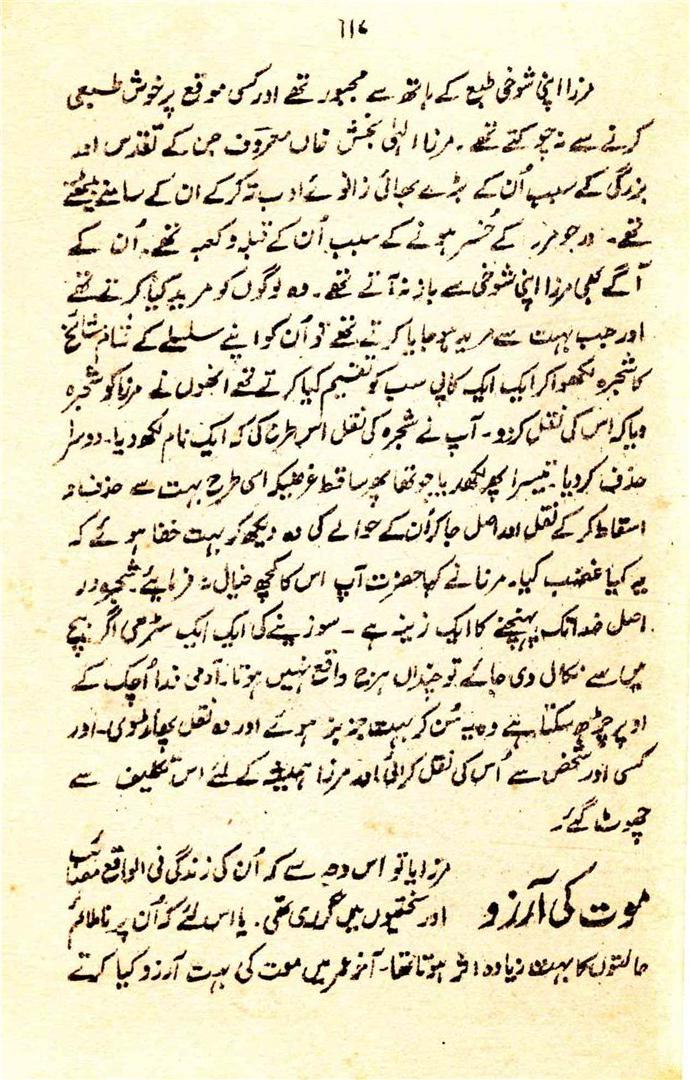 ۱۱۷
مرزا اپنی شوخی طبع کے ہاتھ سے مجبور تھے اور کسی موقع پر خوش طبعی
کرنے سے نہ چوکتے تھے ۔ مرزا الہٰی بخش خاں معروف جن کے تقدس اور
بزرگی کے سبب اُن کے بڑے بھائی زانوئے ادب تہ کر کے ان کے سامنے بیٹھتے
تھے ۔ اور جو مرزا کے خُسر ہونے کے سبب اُن کے قبلہ و کعبہ تھے ۔ اُن کے
آگے بھی مرزا اپنی شوخی سے باز نہ آتے تھے ۔ وہ لوگوں کو مرید کیا کرتے تھے
اور جب بہت سے مرید ہو جایا کرتے تھے تو اُن کو اپنے سلسلے کے تمام مشائخ
کا شجرہ لکھوا کر ایک ایک کاپی سب کو تقسیم کیا کرتے تھے انھوں نے مرزا کو شجرہ
دیا کہ اس کی نقل کر دو ۔ آپ نے شجرہ کی نقل اس طرح کی کہ ایک نام لکھ دیا ۔ دوسرا
حذف کر دیا ۔ تیسرا پھر لکھ دیا چوتھا پھر ساقط غرضیکہ اسی طرح بہت سے حذف و
اسقاط کر کے نقل اور اصل جا کر اُن کے حوالے کی وہ دیکھ کر بہت خفا ہوئے کہ
یہ کیا غضب کیا ۔ مرزا نے کہا حضرت آپ اس کا کچھ خیال نہ فرمایئے ۔ شجرہ در
اصل خدا تک پہنچنے کا ایک زینہ ہے ۔ سو زینے کی ایک ایک سیڑھی اگر بیچ
میں سے نکال دی جائے تو چنداں ہرج واقع نہیں ہوتا ۔ آدمی ذرا اُچک کے
اوپر چڑھ سکتا ہے وہ یہ سُن کر بہت جزبز ہوئے اور وہ نقل پھاڑ ڈالی ۔ اور
کسی اور شخص سے اُس کی نقل کرائی اور مرزا ہمیشہ کے لئے اس تکلیف سے
چھوٹ گئے ۔
موت کی آرزو
مرزا یا تو اس وجہ سے کہ اُن کی زندگی فی الواقع مصائب
اور سختیوں میں گزری تھی ۔ یا اس لئے کہ اُن پر ناملائم
حالتوں کا بہت زیادہ اثر ہوتا تھا ۔ آخر عمر میں موت کی بہت آرزو کیا کرتے